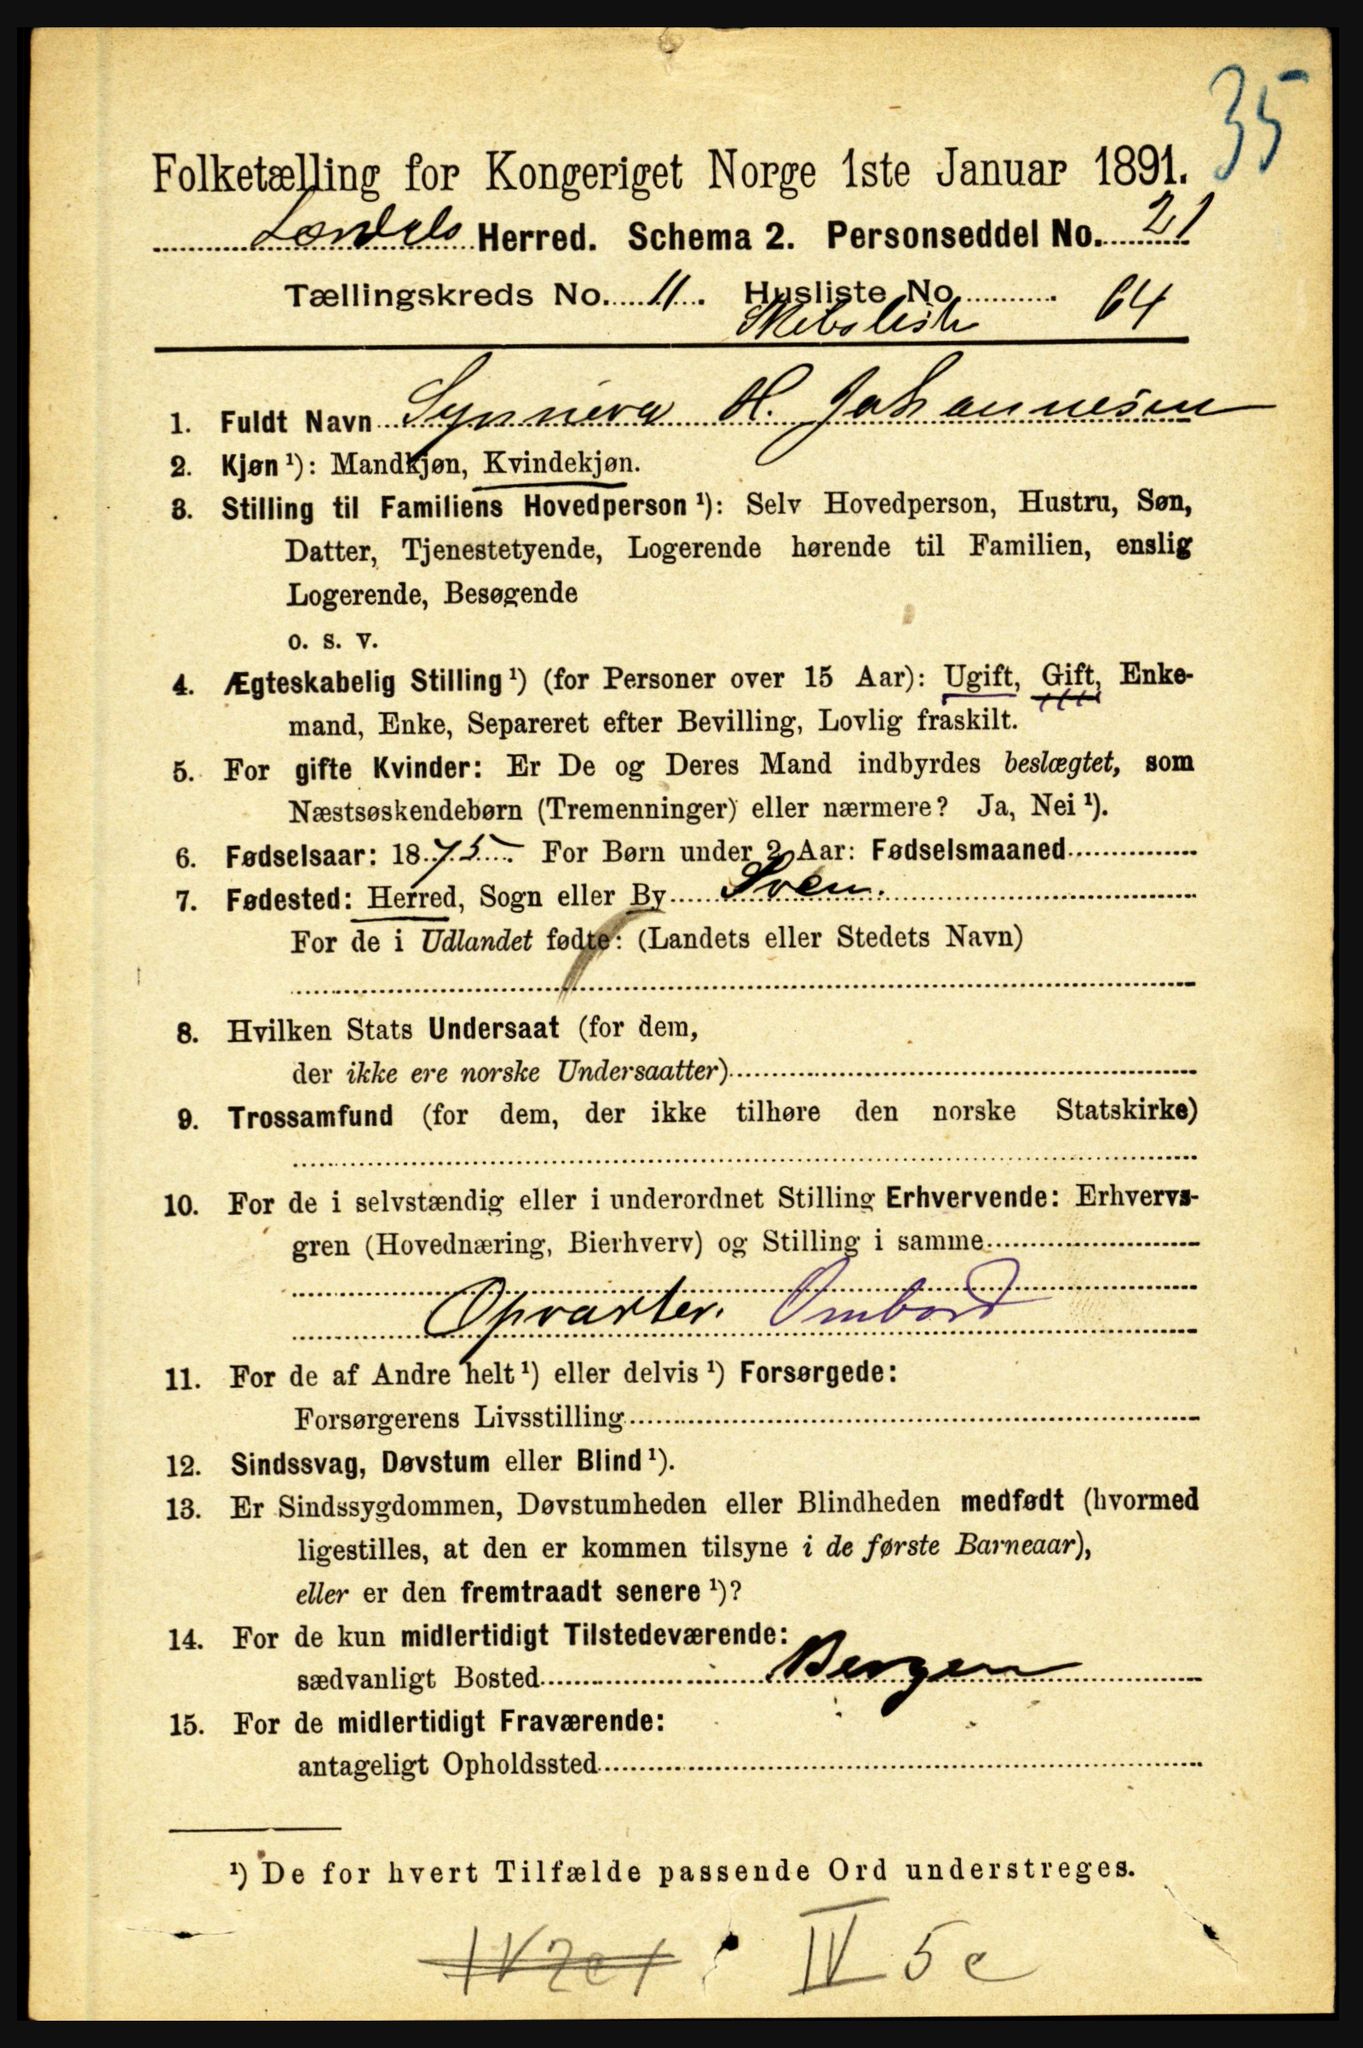 35
Folketælling for Kongeriget Norge 1ste Januar 1891.
Lærdals Herred. Schema 2. Personseddel No. 21
Tællingskreds No. 11. Husliste No. 64
Skibsliste
1. Fuldt Navn Synneva H. Johannesen
2. Kjøn ¹): Mandkjøn, Kvindekjøn.
3. Stilling til Familiens Hovedperson ¹): Selv Hovedperson, Hustru, Søn,
Datter, Tjenestetyende, Logerende hørende til Familien, enslig
Logerende, Besøgende
o. s. v.
4. Ægteskabelig Stilling ¹) (for Personer over 15 Aar): Ugift, Gift, Enke-
mand, Enke, Separeret efter Bevilling, Lovlig fraskilt.
5. For gifte Kvinder: Er De og Deres Mand indbyrdes beslægtet, som
Næstsøskendebørn (Tremenninger) eller nærmere? Ja, Nei ¹).
6. Fødselsaar: 1875. For Børn under 2 Aar: Fødselsmaaned
7. Fødested: Herred, Sogn eller By Sven.
For de i Udlandet fødte: (Landets eller Stedets Navn)
8. Hvilken Stats Undersaat (for dem,
der ikke ere norske Undersaatter)
9. Trossamfund (for dem, der ikke tilhøre den norske Statskirke)
10. For de i selvstændig eller i underordnet Stilling Erhvervende: Erhvervs-
gren (Hovednæring, Bierhverv) og Stilling i samme
Opvarter. Ombord
11. For de af Andre helt ¹) eller delvis ¹) Forsørgede:
Forsørgerens Livsstilling
12. Sindssvag, Døvstum eller Blind ¹).
13. Er Sindssygdommen, Døvstumheden eller Blindheden medfødt (hvormed
ligestilles, at den er kommen tilsyne i de første Barneaar),
eller er den fremtraadt senere ¹)?
14. For de kun midlertidigt Tilstedeværende:
sædvanligt Bosted Bergen
15. For de midlertidigt Fraværende:
antageligt Opholdssted
¹) De for hvert Tilfælde passende Ord understreges.
IV 5 c